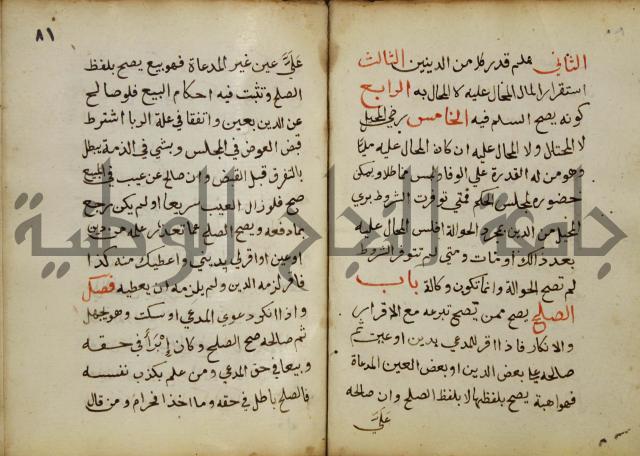 الثاني علم قدر كل من الدينين الثالث
استقرار المال المحال عليه لا المحال به الرابع
كونه يصح السلم فيه الخامس رضى المحيل
لا المحتال ولا المحال عليه ان كان المحال عليه مليا
وهو من له القدرة على الوفا وليس مماطلا ويمكن
حضوره لمجلس الحكم فمتى توفرت الشروط بري
المحيل من الدين بمجرد الحوالة افلس المحال عليه
بعد ذلك او مات ومتى لم تتوفر الشروط
لم تصح الحوالة وانما تكون وكالة باب
الصلح يصح ممن يصح تبرعه مع الاقرار
والانكار فاذا اقر للمدعي بدين او عين ثم
صالحه على بعض الدين او بعض العين المدعاة
فهو هبة يصح بلفظها لا بلفظ الصلح وان صالحه
على
٨١
على عين غير المدعاة فهو بيع يصح بلفظ
الصلح وتثبت فيه احكام البيع فلو صالح
عن الدين بعين واتفقا في علة الربا اشترط
قبض العوض في المجلس وبشي في الذمة يبطل
بالتفرق قبل القبض وان صالح عن عيب في المبيع
صح فلو زال العيب سريعا او لم يكن رجع
بما دفعه ويصح الصلح عما تعذر علمه من دين
او عين واقر لي بديني واعطيك منه كذا
فاقر لزمه الدين ولم يلزمه ان يعطيه فصل
واذا انكر دعوى المدعي او سكت وهو يجهل
ثم صالحه صح الصلح وكان إبرأ في حقه
وبيعا في حق المدعي ومن علم بكذب نفسه
فالصلح باطل في حقه وما اخذ فحرام ومن قال
جامعة النجاح الوطنية